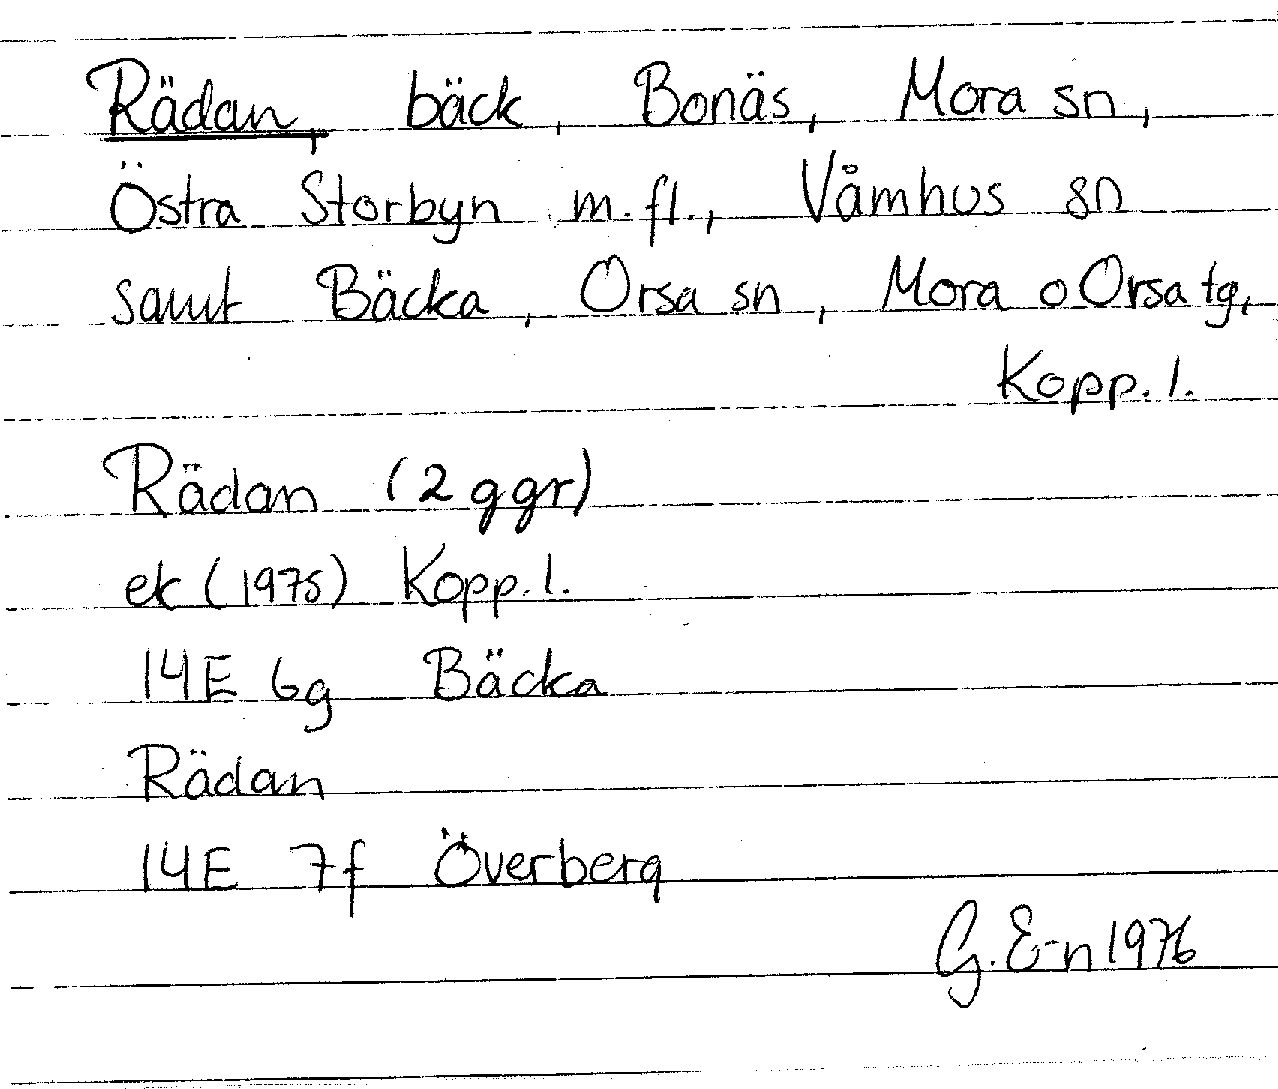 Rädan, bäck, Bonäs, Mora sn,
Östra Storbyn m.fl., Våmhus sn
samt Bäcka, Orsa sn, Mora o Orsa tg,
Kopp. l.
Rädan (2 ggr)
ek (1975) Kopp. l.
14E 6g Bäcka
Rädan
14E 7f Överberg
G. E-n 1976